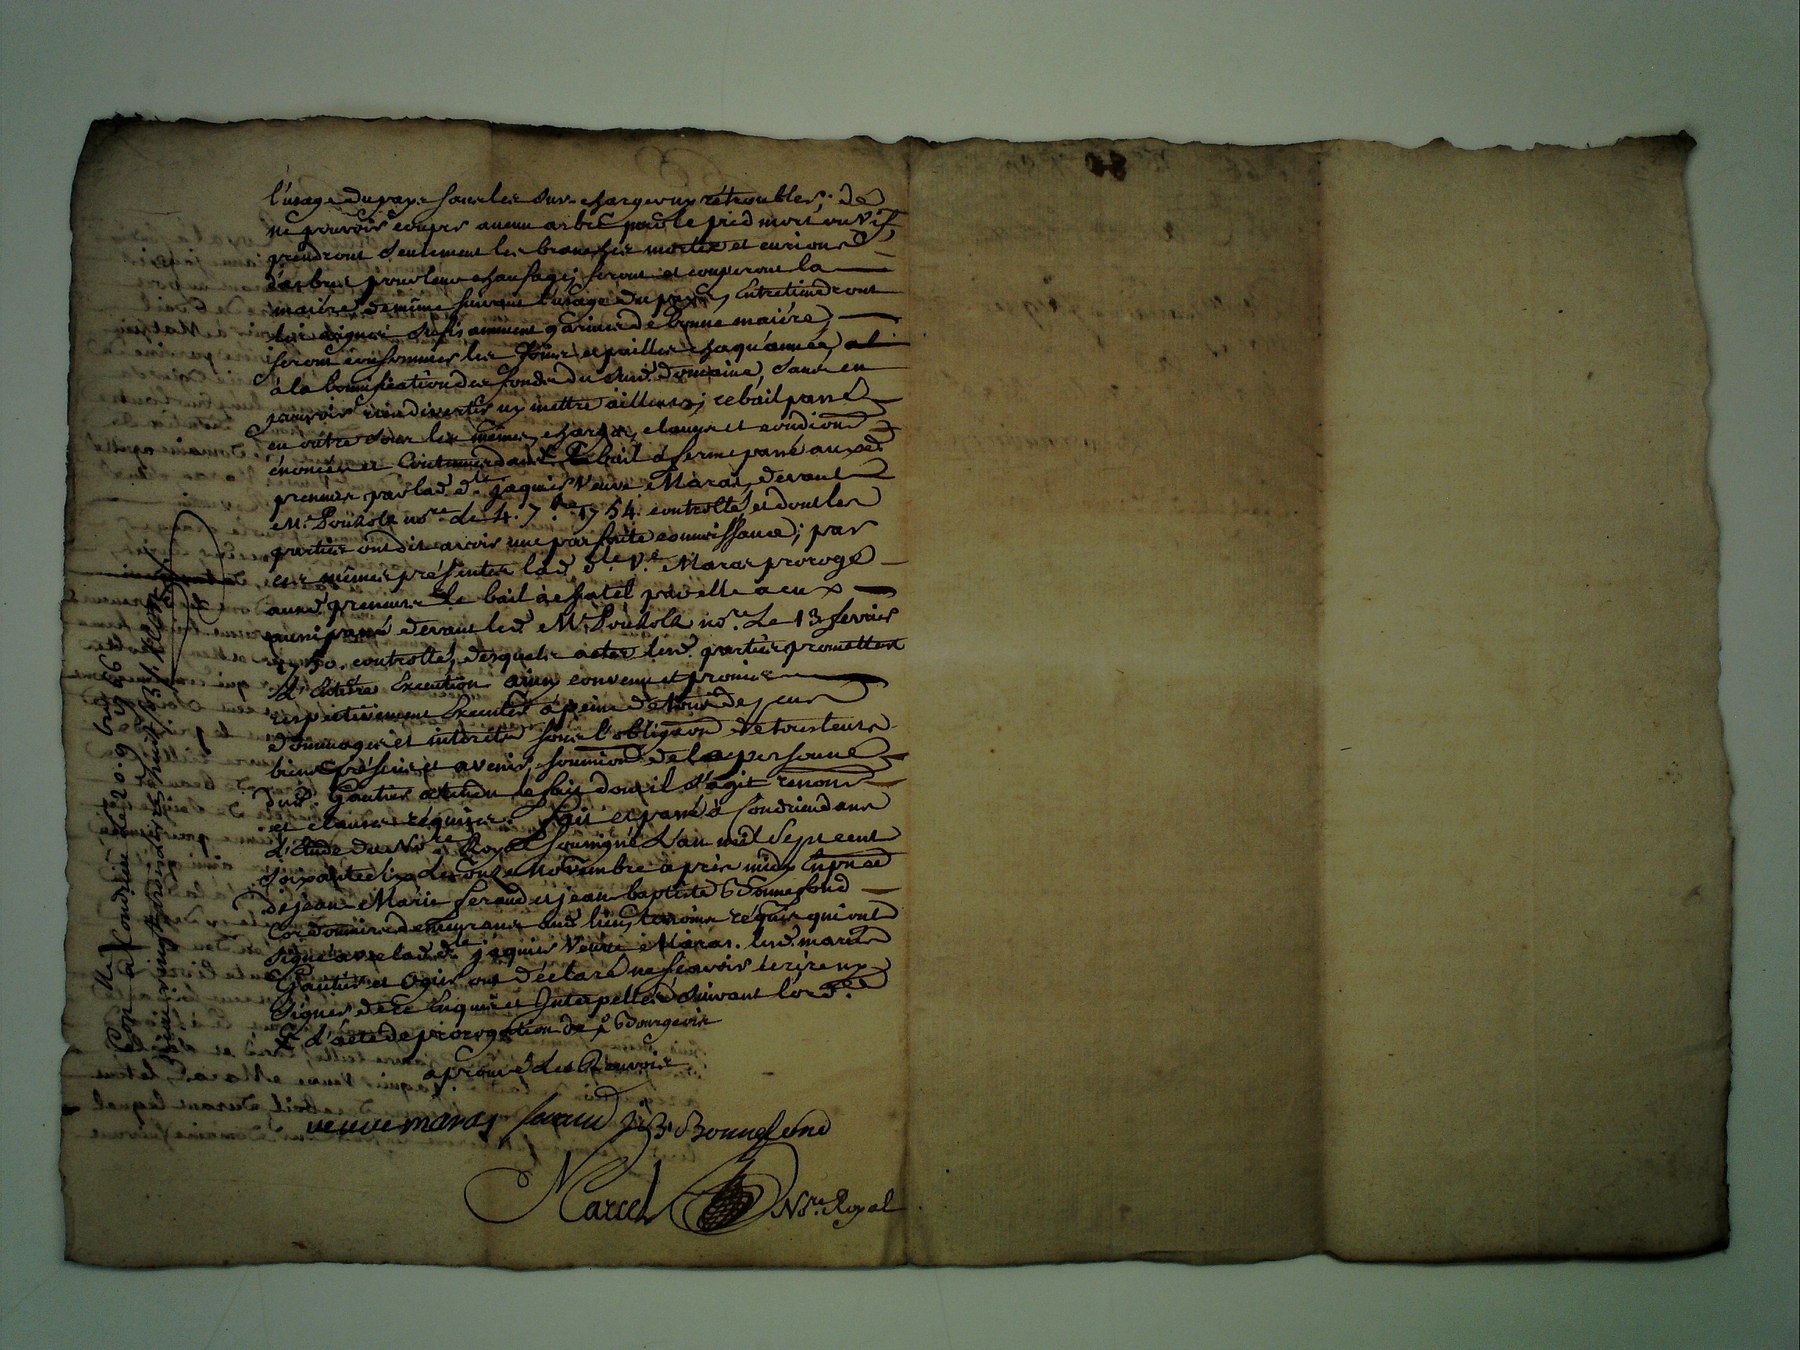 l'usage du pays sous les surchargeoux rétroubles; de
ne pouvoir couper aucun arbre par le pied mort ou vif,
prendront seulement les branches mortes et
d'arbres pour leur chaufage; feront et couperont la
maière de même suivant l'usage du pays, entretiendront
les vignes sufisamment garnies de bonne maiére,
feront consommer les foins et pailles chaqu'année
à la bonnification des fonds du sus.d domaine, sans en
pouvoir rien divertir ny mettre ailleurs; ce bail passé
en outre sous les mêmes charges, clauses et condions
énoncées et contenues dans le bail à ferme passé aux.d
preneurs par lad. d.lle jaquier Veuve Maras devant
M.e Pouhola no.re le 4. 7.bre 1754. controllé, et dont les
parties ont dit avoir une parfaite connoissance; par
ces mêmes présentes lad. d.lle v.e Maras proroge
aux.d preneurs le bail à chatel par elle a eux
aussi passé devant led. M.e Pouhola no.re le 13 fevrier
1750. controllé, desquels actes lesd. parties promettent
l'entière execution ainsy convenu et promis
respectivement executer à peine de tous depens
dommages et interêts sous l'obligaon de tous leurs
biens présens et avenir, soumions de la personne
dud. Gautier attendu le fait dont il s'agit renons
et clauses requises. Fait et passé à Condrieu dans
l'Etude du No.re Royal soussigné L'an mil sept cent
soixante six le onze Novembre après midy En pnce
de jean Marie feraud et jean baptiste Bonnefond
Cordonniers demeurans aud. lieu, temoins requis qui ont
signé avec lad. d.lle jaquier Veuve Maras. lesd. mariés
Gautier et Ogier ont déclaré ne sçavoir écrire ny
signer de ce Enquis et Interpellés suivant l'ord.ce
l'acte de prorogation de Bourgeois
aprouvé les Renvois
veuve maras feraud J. B. Bonnefond
Marcel No.re Royal
Con.llé à Condrieu le 20. 9bre 1766